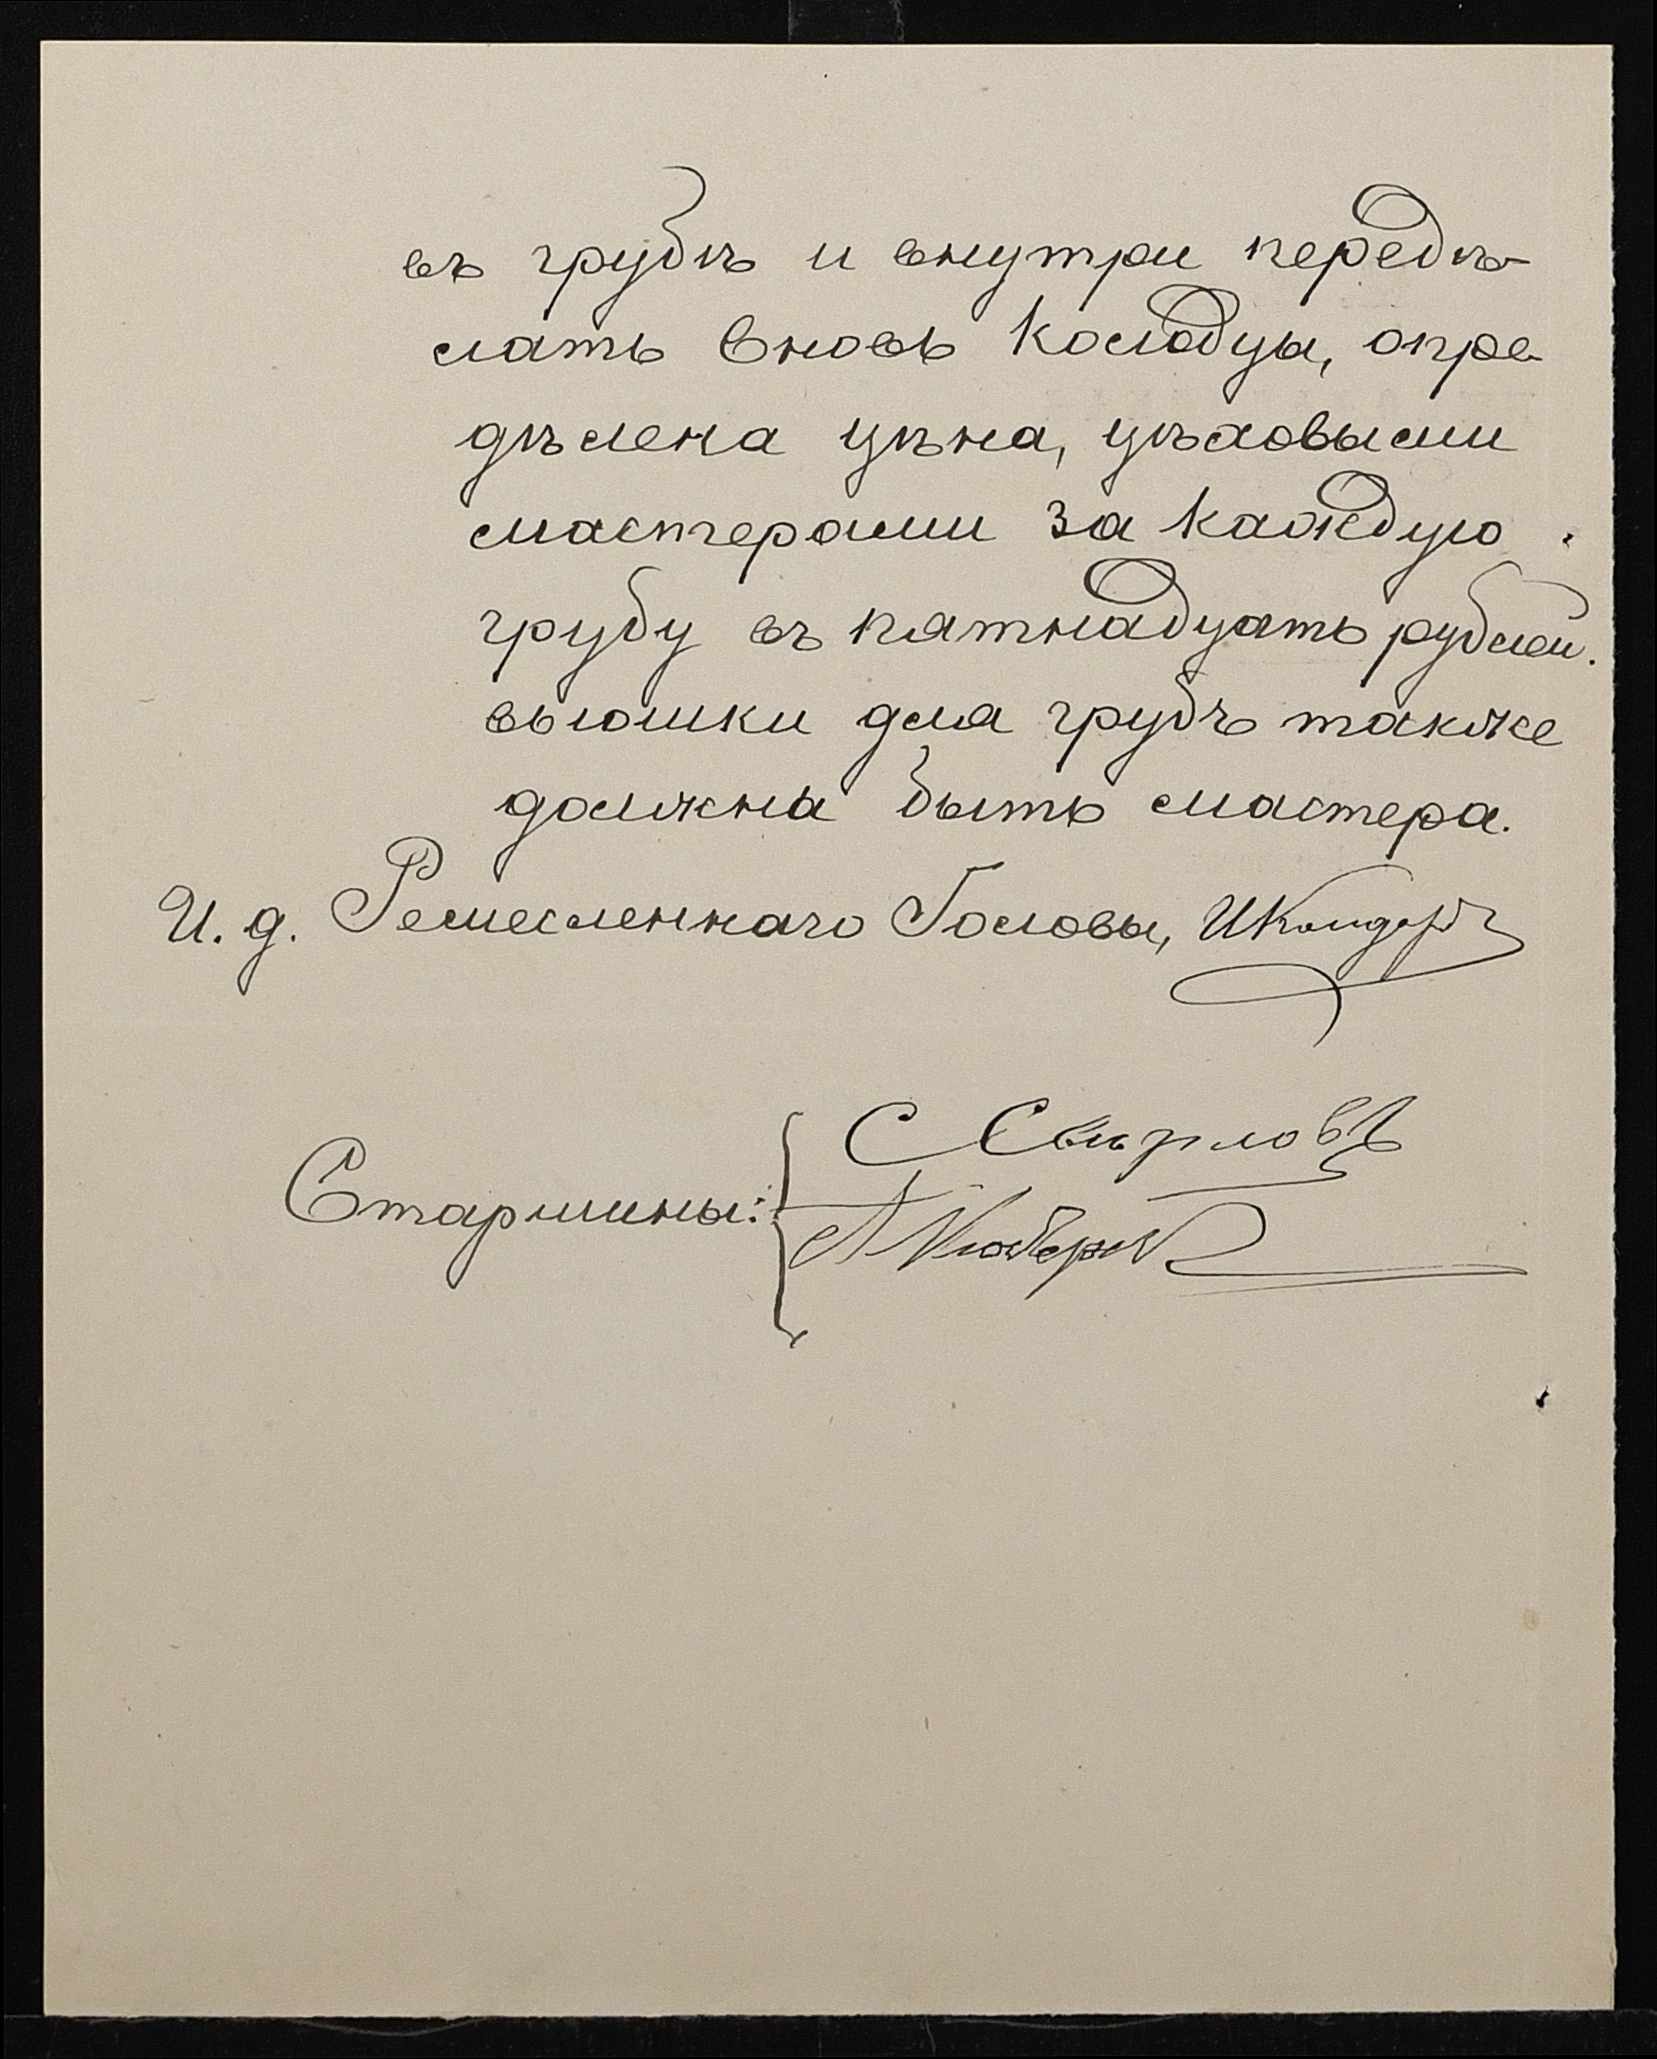 въ грубѣ и внутри передѣ-
лать вновь колодцы, опре-
дѣлена цѣна, цѣховыми
мастерами за каждую
грубу въ пятнадцать рублей.
вьюшки для грубъ также
должна быть мастера.
И. д. Ремесленнаго Головы,
Старшины:
С
А